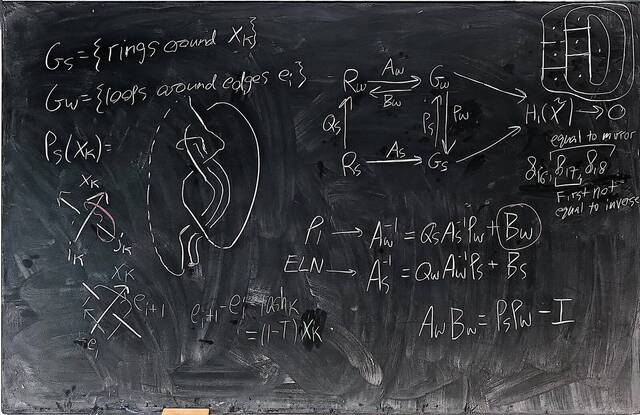 Gs = {rings around Xk}
Gw = {loops around edges ei}
Ps(Xk) =
Xk
ik jk
Xk
ei+1
ei
ei+1 - ei
= (1-T) Xk
Rw Aw Gw
Bw
Qs Ps Pw
Rs As Gs
H1(X̃) → 0
equal to mirror
8₁₆, 8₁₇, 8₁₈
First not
equal to inverse
Pi → Aw⁻¹ = Qs As⁻¹ Pw + Bw
ELN → As⁻¹ = Qw Aw⁻¹ Ps + Bs
Aw Bw = Ps Pw - I